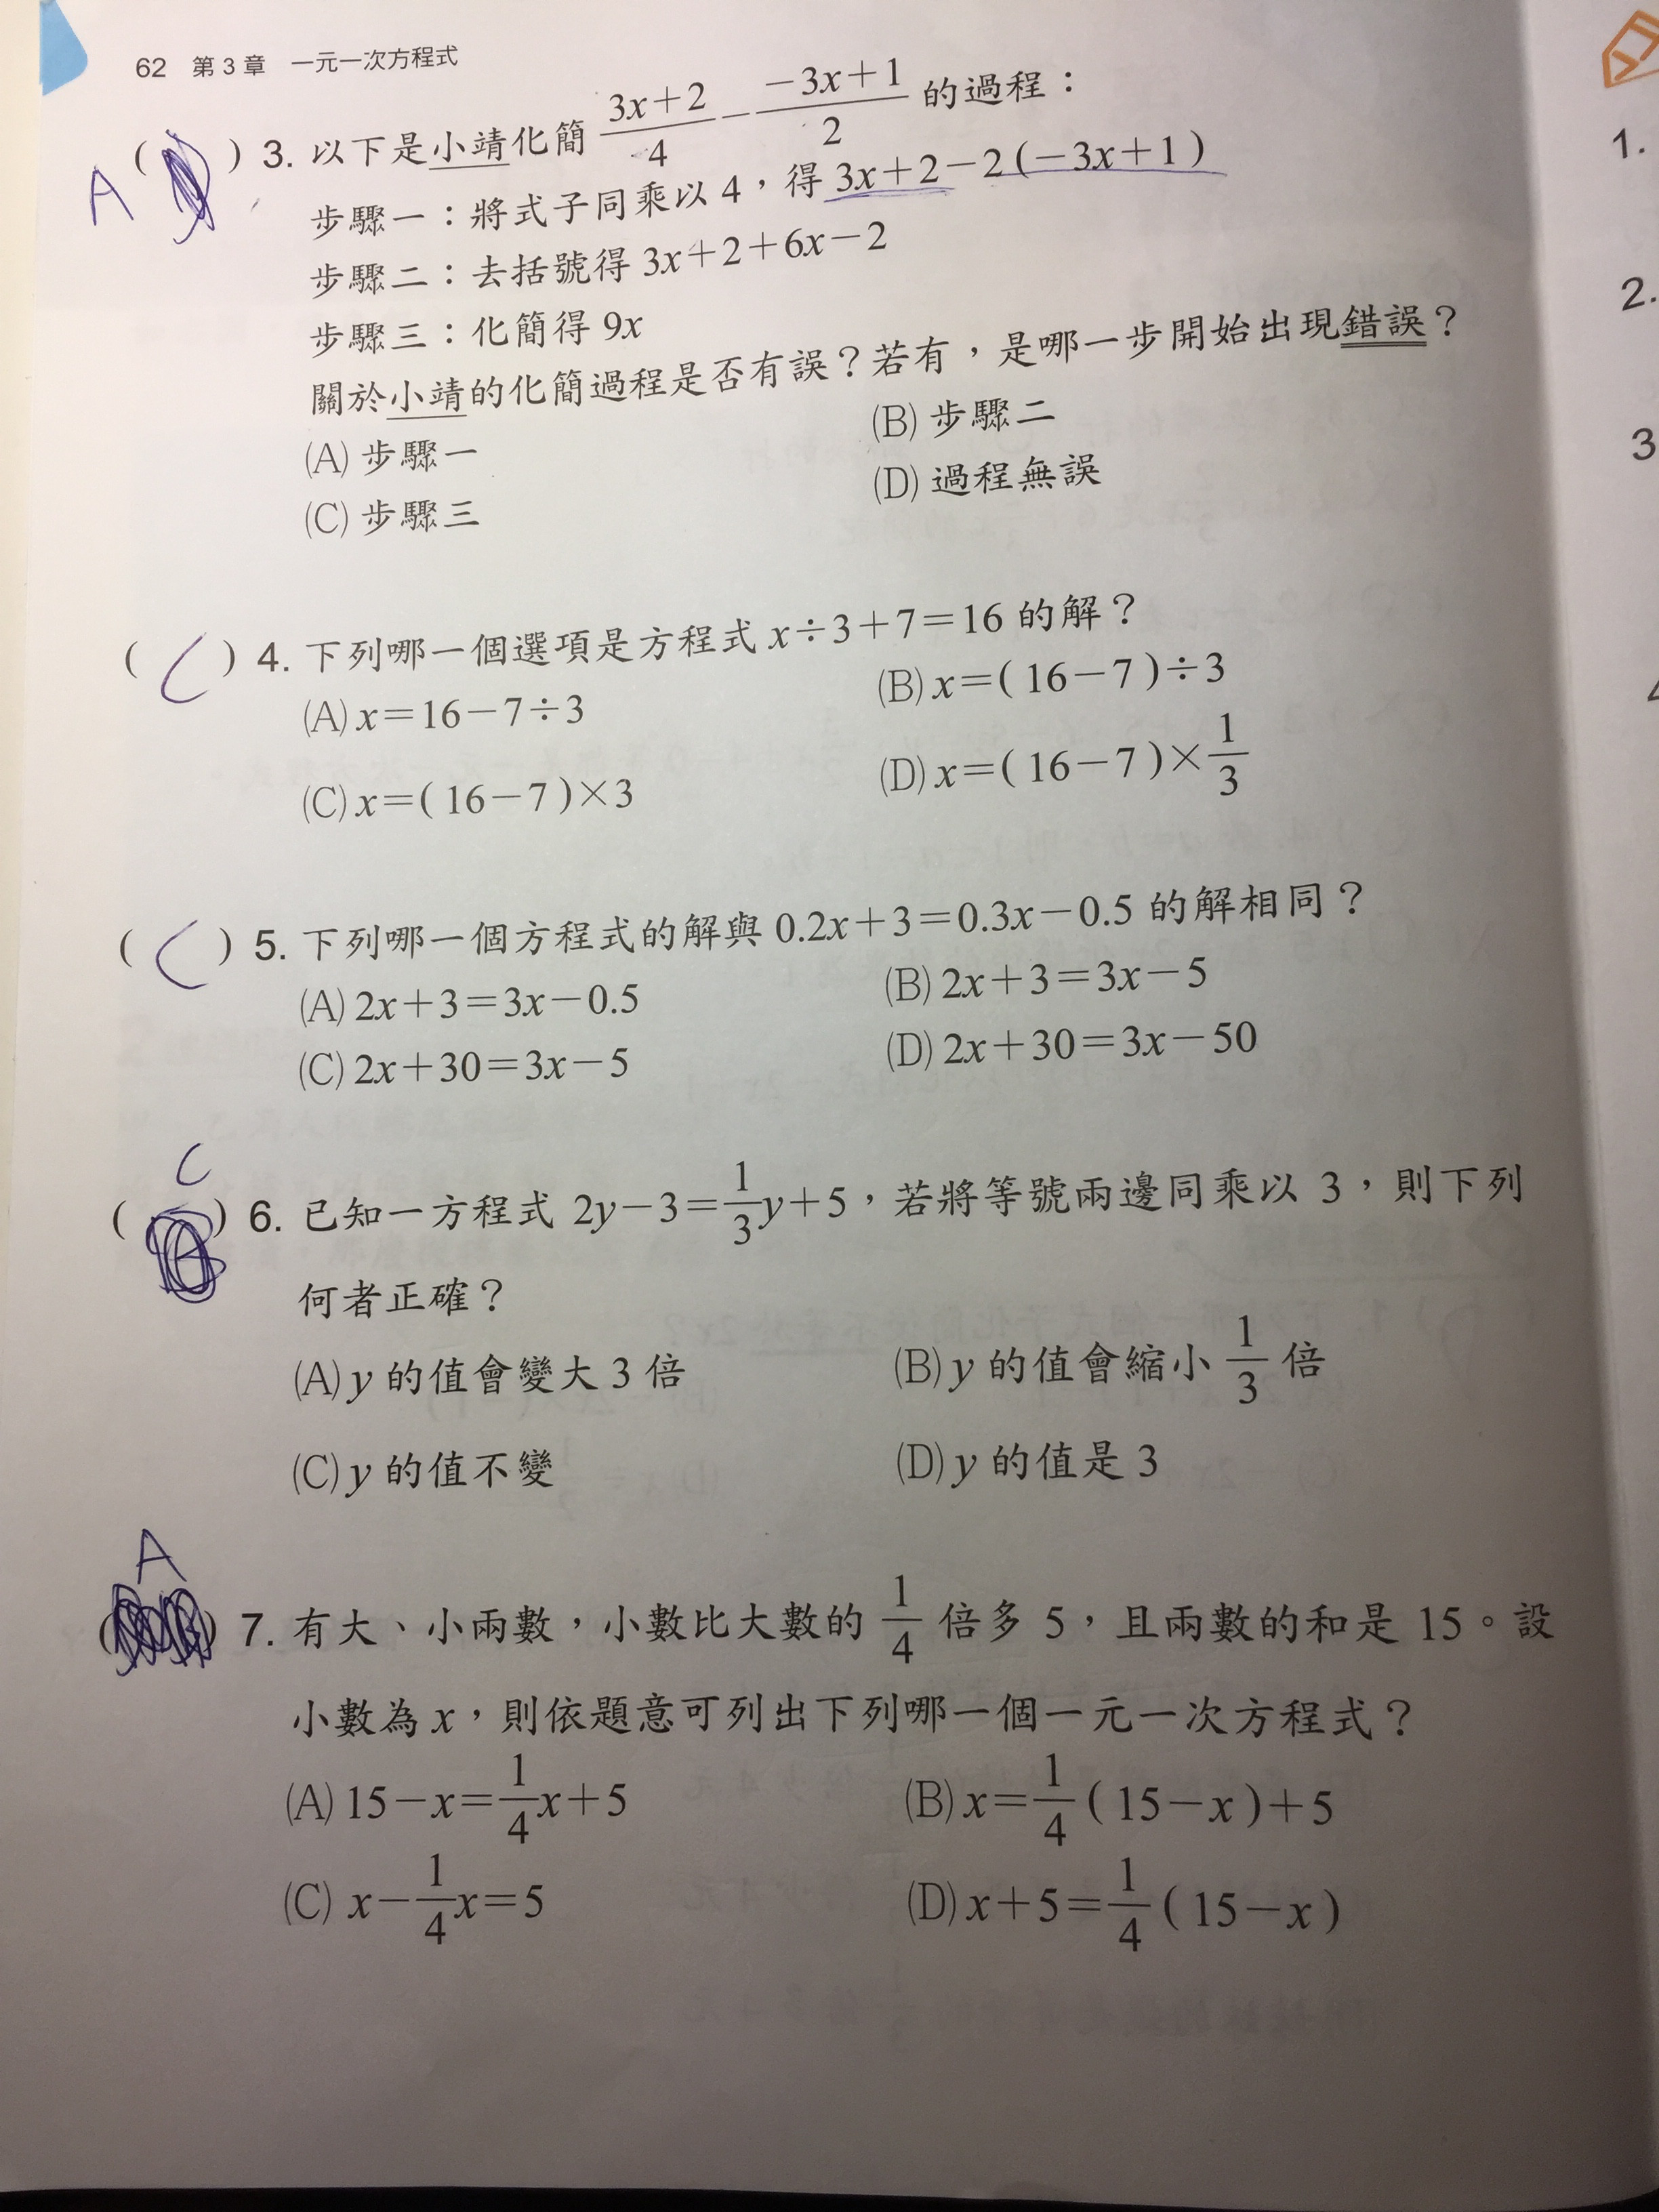 62 第3章 一元一次方程式
A ( ) 3. 以下是小靖化簡 \frac{3x+2}{4} - \frac{-3x+1}{2} 的過程：
步驟一：將式子同乘以 4，得 3x+2-2(-3x+1)
步驟二：去括號得 3x+2+6x-2
步驟三：化簡得 9x
關於小靖的化簡過程是否有誤？若有，是哪一步開始出現錯誤？
(A) 步驟一 (B) 步驟二
(C) 步驟三 (D) 過程無誤
( C ) 4. 下列哪一個選項是方程式 x÷3+7=16 的解？
(A) x=16-7÷3 (B) x=(16-7)÷3
(C) x=(16-7)×3 (D) x=(16-7)×\frac{1}{3}
( C ) 5. 下列哪一個方程式的解與 0.2x+3=0.3x-0.5 的解相同？
(A) 2x+3=3x-0.5 (B) 2x+3=3x-5
(C) 2x+30=3x-5 (D) 2x+30=3x-50
C
( ) 6. 已知一方程式 2y-3=\frac{1}{3}y+5，若將等號兩邊同乘以 3，則下列
何者正確？
(A) y 的值會變大 3 倍 (B) y 的值會縮小 \frac{1}{3} 倍
(C) y 的值不變 (D) y 的值是 3
A
( ) 7. 有大、小兩數，小數比大數的 \frac{1}{4} 倍多 5，且兩數的和是 15。設
小數為 x，則依題意可列出下列哪一個一元一次方程式？
(A) 15-x=\frac{1}{4}x+5 (B) x=\frac{1}{4}(15-x)+5
(C) x-\frac{1}{4}x=5 (D) x+5=\frac{1}{4}(15-x)
1.
2.
3